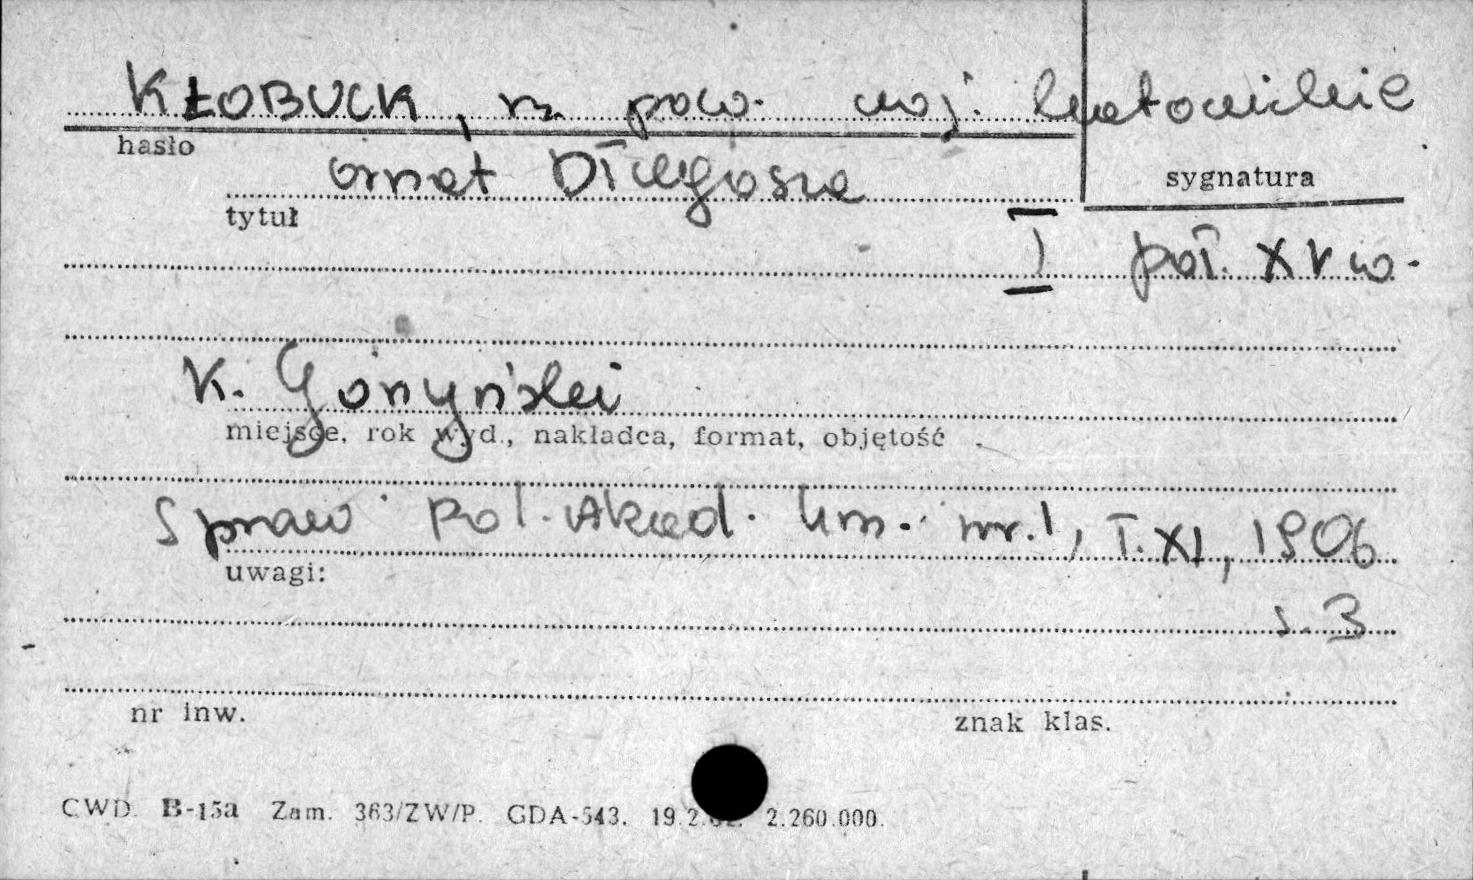 KŁOBUCK, m. pow. woj. katowickie
hasło
ornat Długosza
sygnatura
tytuł
I poł. XV w.
K. Górzyński
miejsce, rok wyd., nakładca, format, objętość
Spraw. Pol. Akad. Um. nr. 1, T. XI, 1906
uwagi:
s. 3
nr inw.
znak klas.
CWD. B-15a Zam. 363/ZW/P. GDA-543. 19.2. 2.260.000.